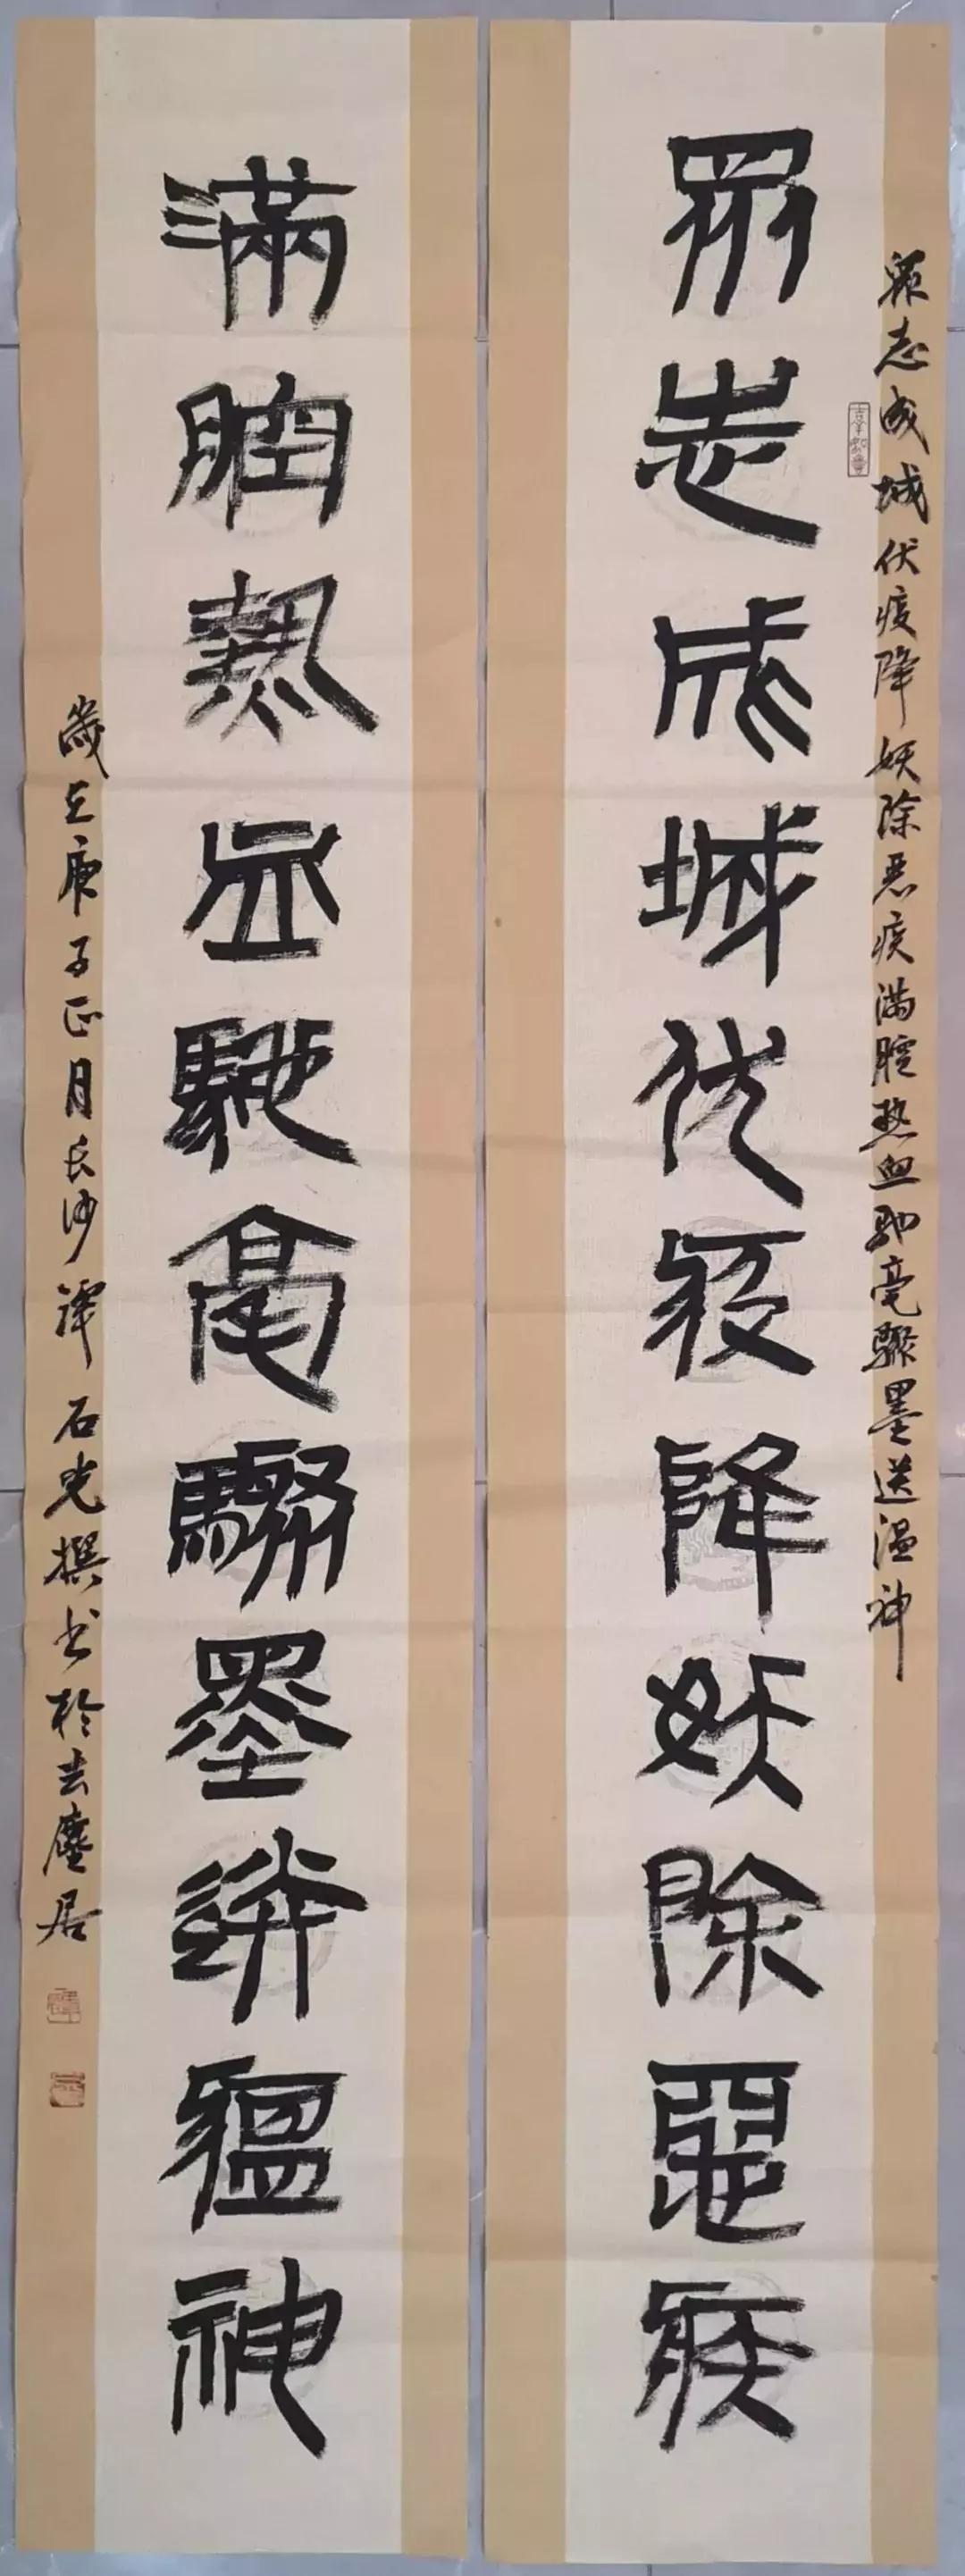 眾志成城伏疫降妖除恶疾满腔热血驰毫骤墨送温神
眾志成城伏疫降妖除惡疾
滿腔熱血馳毫驟墨送瘟神
歲在庚子正月长沙譚石光撰书於去塵居